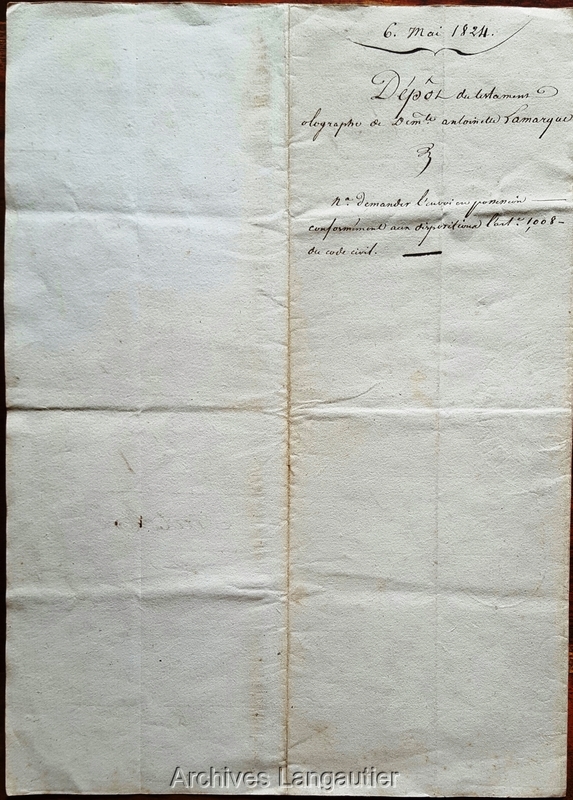 6. Mai 1824.
Dépôt du testament
olographe de Dem.lle antoinette Lamarque
n.a demander l'envoi en possession
conformément aux dispositions l'art.e 1,008
du code civil.
Archives Langautier